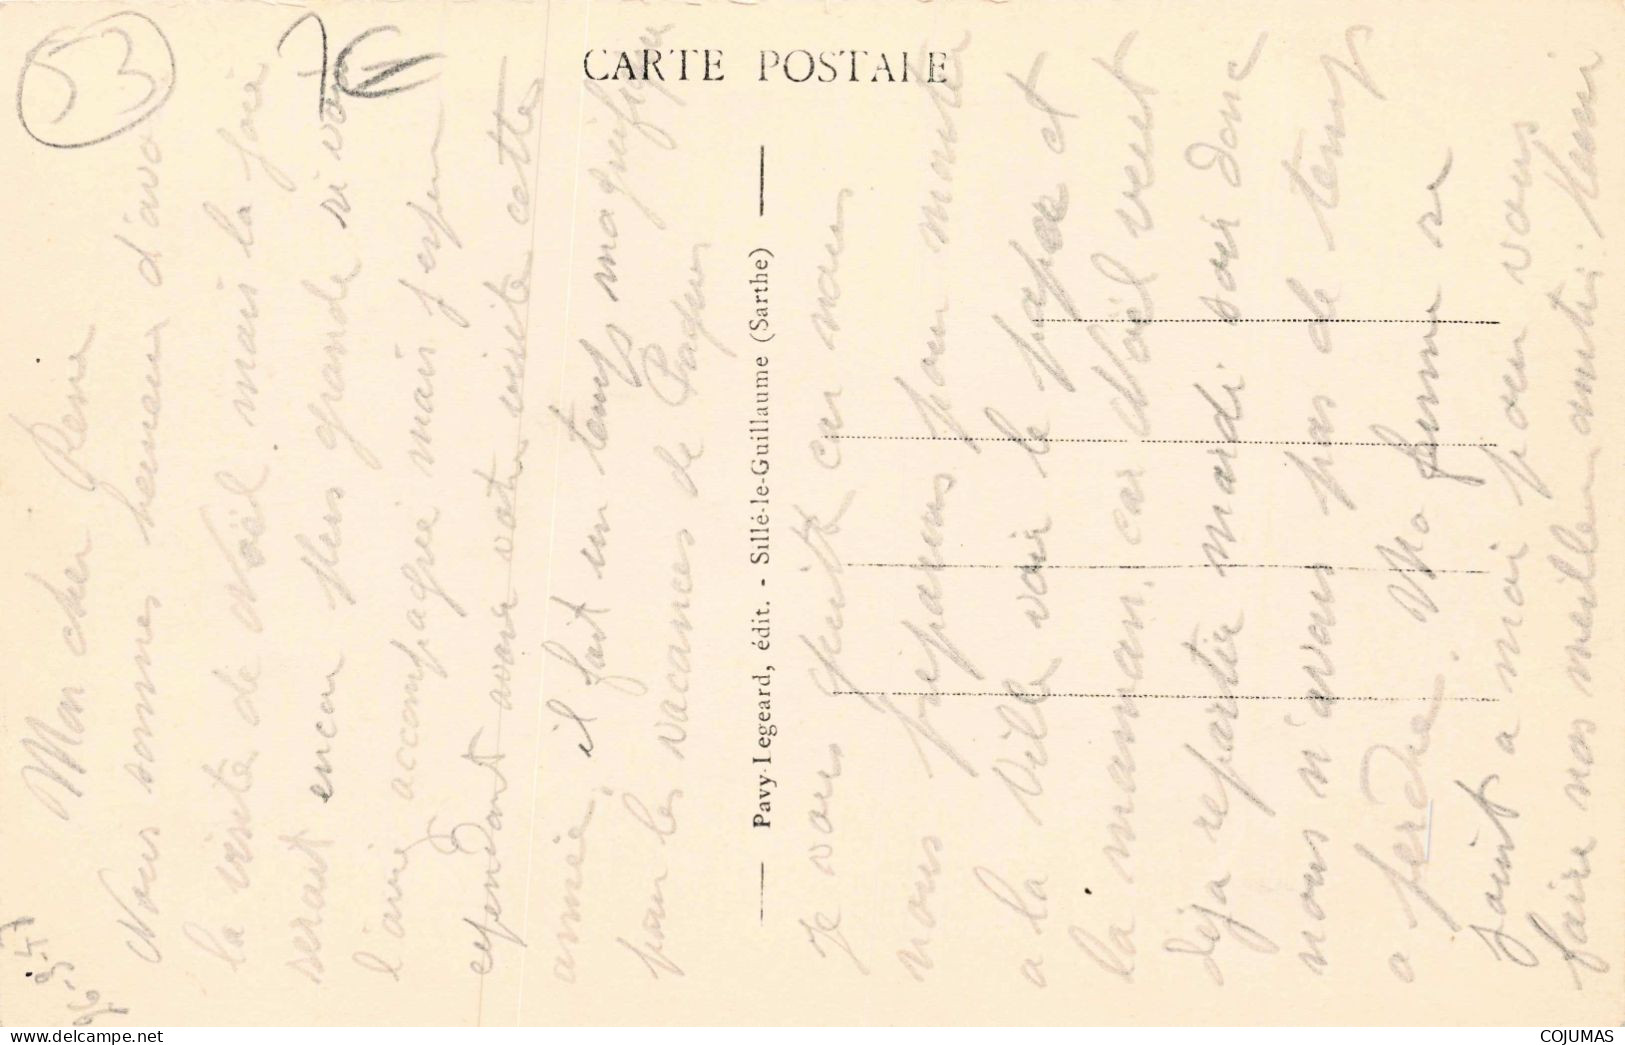 CARTE POSTALE
Pavy-Legeard, édit. - Sillé-le-Guillaume (Sarthe)
53
7€
Mon cher René
Nous sommes heureux d'avoir
la visite de Noël mais la joie
serait encore plus grande si vous
l'aviez accompagné mais j'espère
cependant avoir votre visite cette
année, il fait un temps magnifique
pour les vacances de Pâques
Je vous quitte car nous
nous préparons pour monter
a la Ville voir le papa et
la maman. car Noël veut
deja repartir mardi soir donc
nous n'avons pas de temps
a perdre. Ma femme se
joint a moi pour vous
faire nos meilleures amitiés.
COJUMAS